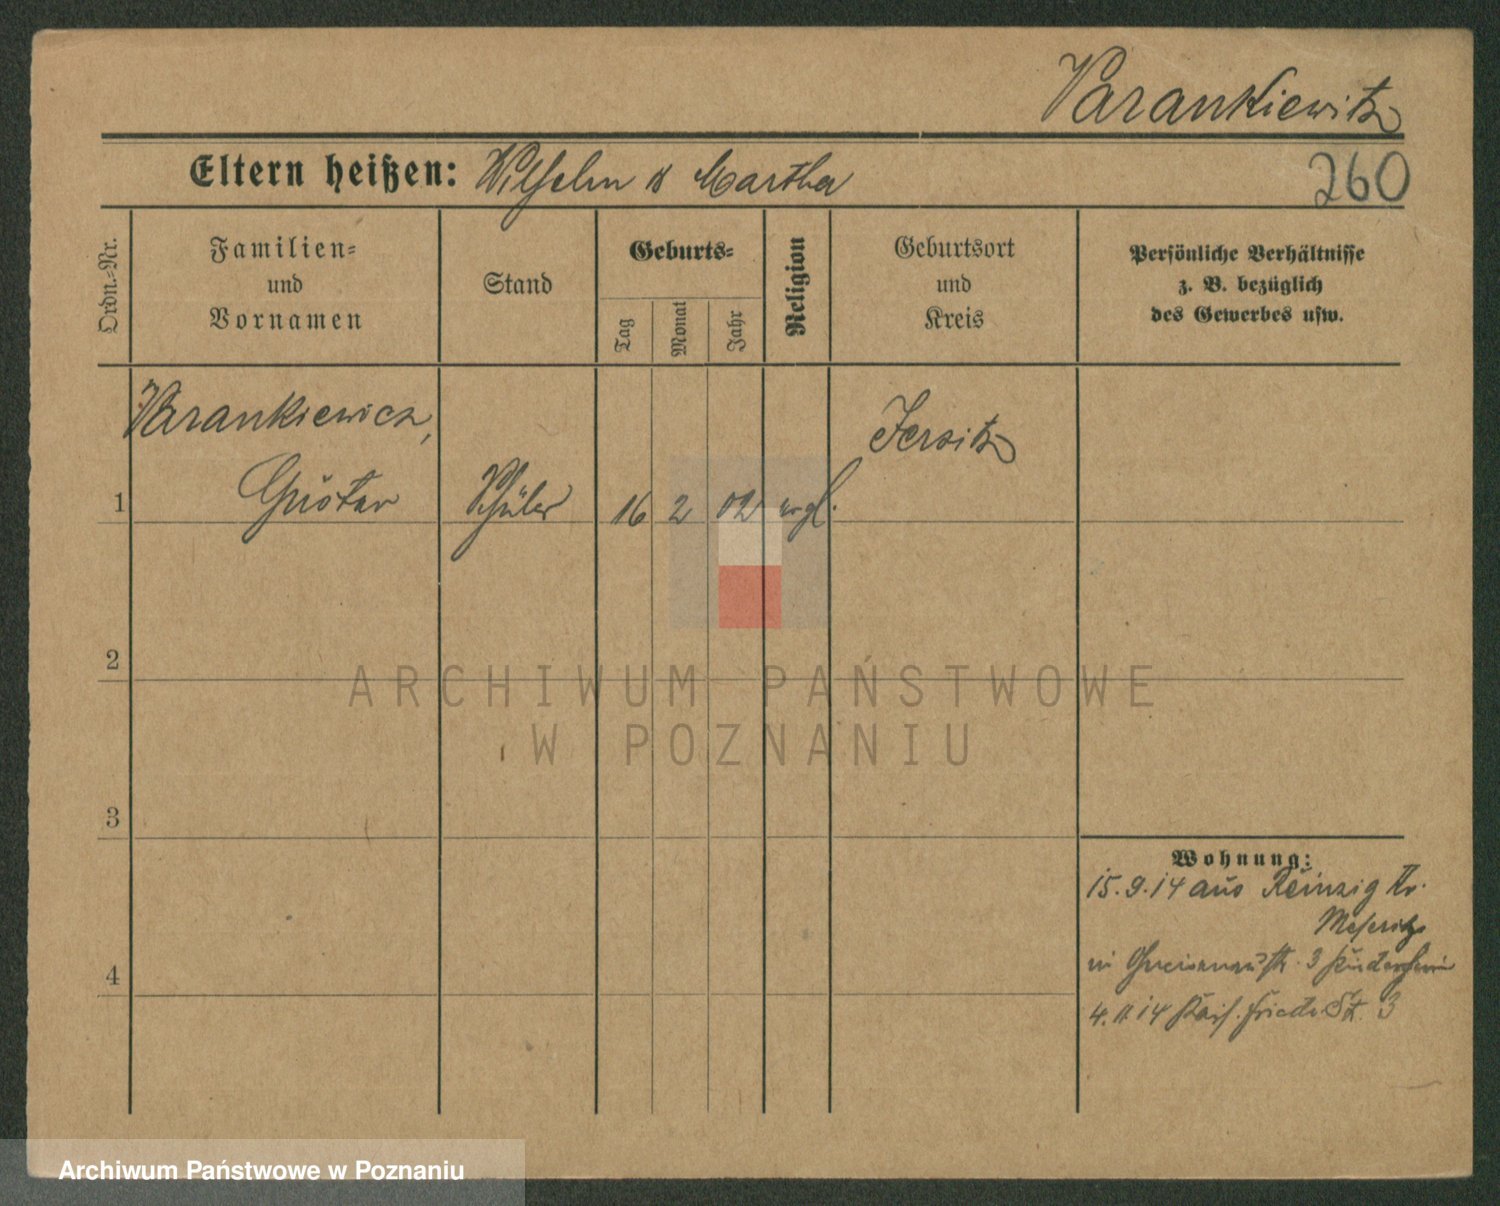 Varankiewitz
Eltern heißen: Wilhelm & Martha
260
Ordn.-Nr.
Familien-
und
Vornamen
Stand
Geburts-
Tag
Monat
Jahr
Religion
Geburtsort
und
Kreis
Persönliche Verhältnisse
z. B. bezüglich
des Gewerbes usw.
Varankiewicz,
Jersitz
1 Gustav Schüler 16 2 02 evgl.
2
ARCHIWUM PAŃSTWOWE
W POZNANIU
3
Wohnung:
15.9.14 aus Reinzig Kr.
Meseritz
in Gneisenaustr. 3 Kinderheim
4
4.11.14 Kais. Friedr. St. 3
Archiwum Państwowe w Poznaniu